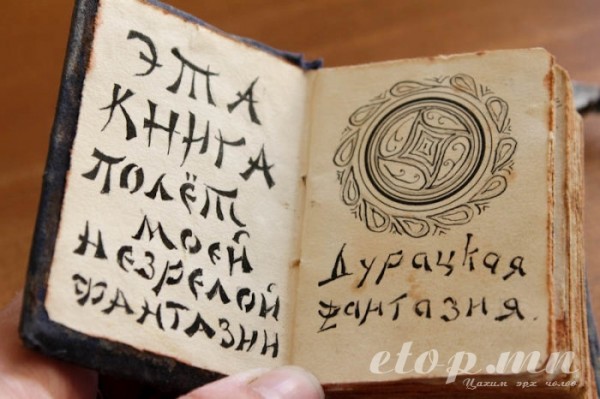 ЭТА
КНИГА
ПОЛЁТ
МОЕЙ
НЕЗРЕЛОЙ
ФАНТАЗИИ
Дурацкая
фантазия.
etop.mn
Цахим эрх чөлөө